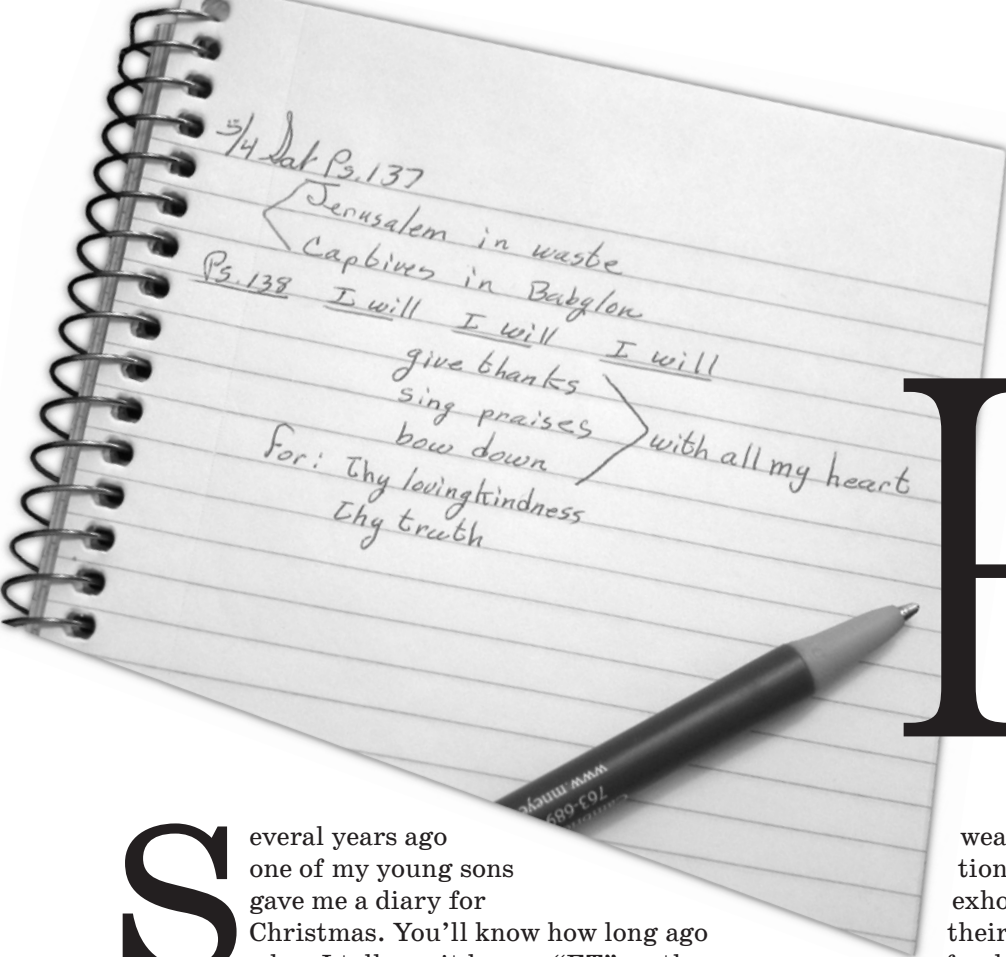 5/4 Sat Ps. 137
Jerusalem in waste
Captives in Babylon
Ps. 138 I will I will I will
give thanks
sing praises
bow down
with all my heart
for: Thy lovingkindness
Thy truth
www.mneye
763-689
Several years ago
one of my young sons
gave me a diary for
Christmas. You’ll know how long ago
wea
tion
exho
their